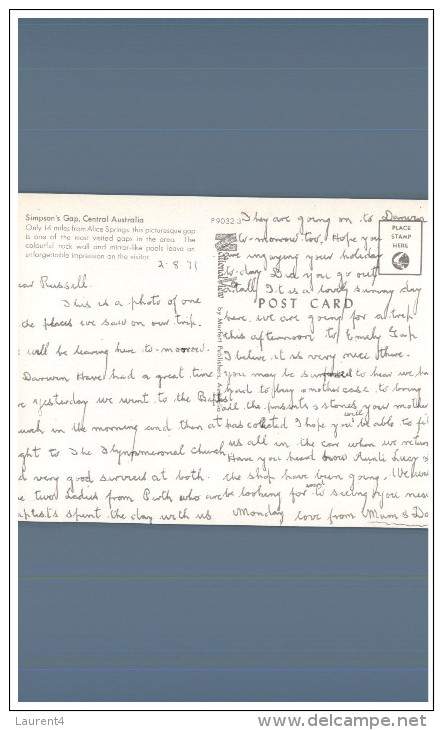 Simpson's Gap, Central Australia
Only 14 miles from Alice Springs, this picturesque gap
is one of the most visited gaps in the area. The
colourful rock wall and mirror-like pools leave an
unforgettable impression on the visitor.
2.8.71
ear Russell.
This is a photo of one
the places we saw on our trip.
will be leaving here to-morrow.
Darwin Have had a great time
yesterday we went to the Baptist
urch in the morning and then at
ght to The Church,
very good service at both. the
two Ladies from Perth who are
aptists spent the day with us
P9032-3
They are going on to Darwin
to-morrow too. Hope you
are enjoying your holiday
to-day. Did you go out
atall, It is a lovely sunny day
POST CARD
PLACE
STAMP
HERE
here, we are going for a trip
this afternoon to Emily Gap
I believe it is very nice there.
you may be surprised to hear we ha
had to buy another case to bring
all the presents & stones your mother
has collected I hope you will be able to fit
us all in the car when we return
Have you heard how Aunti Lucy &
the shop have been going, We
be looking for to seeing you next
Monday love from Mum & Da
by Murfett Publishers
Laurent4
delcampe.net